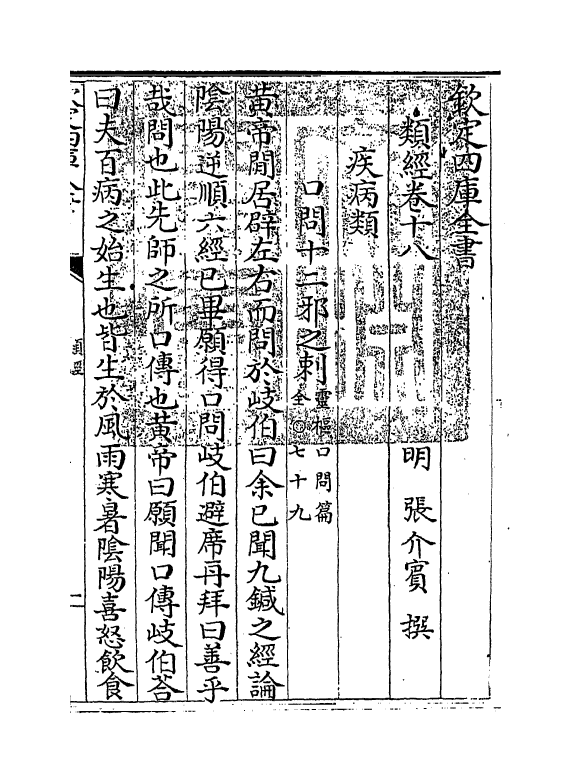 欽定四庫全書
類經卷十八
明 張介賓 撰
疾病類
口問十二邪之刺
靈樞口問篇
全 七十九
黄帝閒居辟左右而問於岐伯曰余已聞九鍼之經論
陰陽逆順六經已畢願得口問岐伯避席再拜曰善乎
哉問也此先師之所口傳也黄帝曰願聞口傳岐伯荅
曰夫百病之始生也皆生於風雨寒暑陰陽喜怒飲食
類經